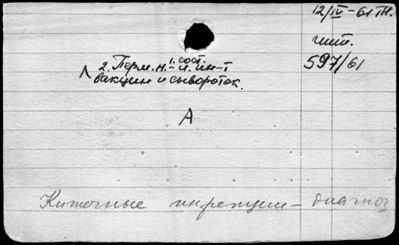 12/IV-61 гн.
шт.
597/61
1. сост.
2. Перм. н.-и. ин-т
вакцин и сывороток.
А
Кишечные инфекции - диагноз